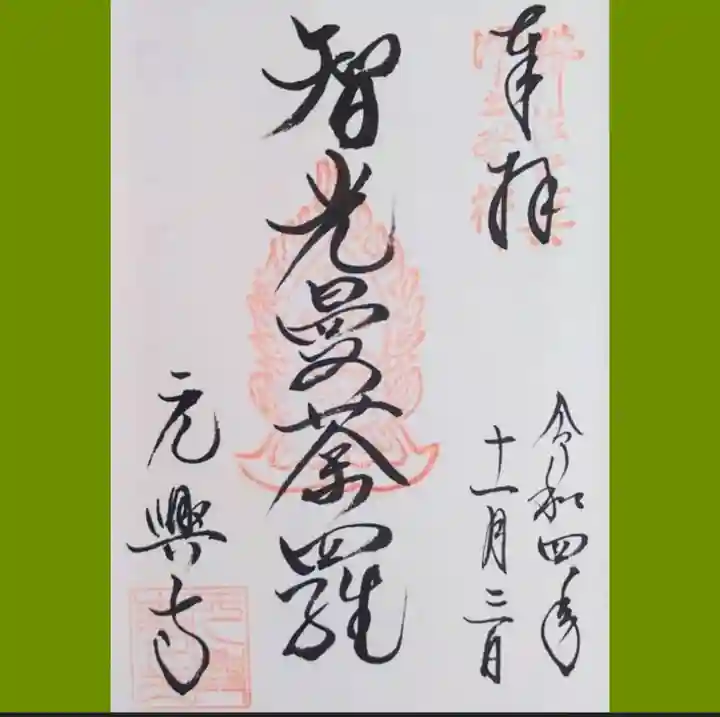 奉拝
令和四年
十一月三日
智光曼荼羅
元興寺